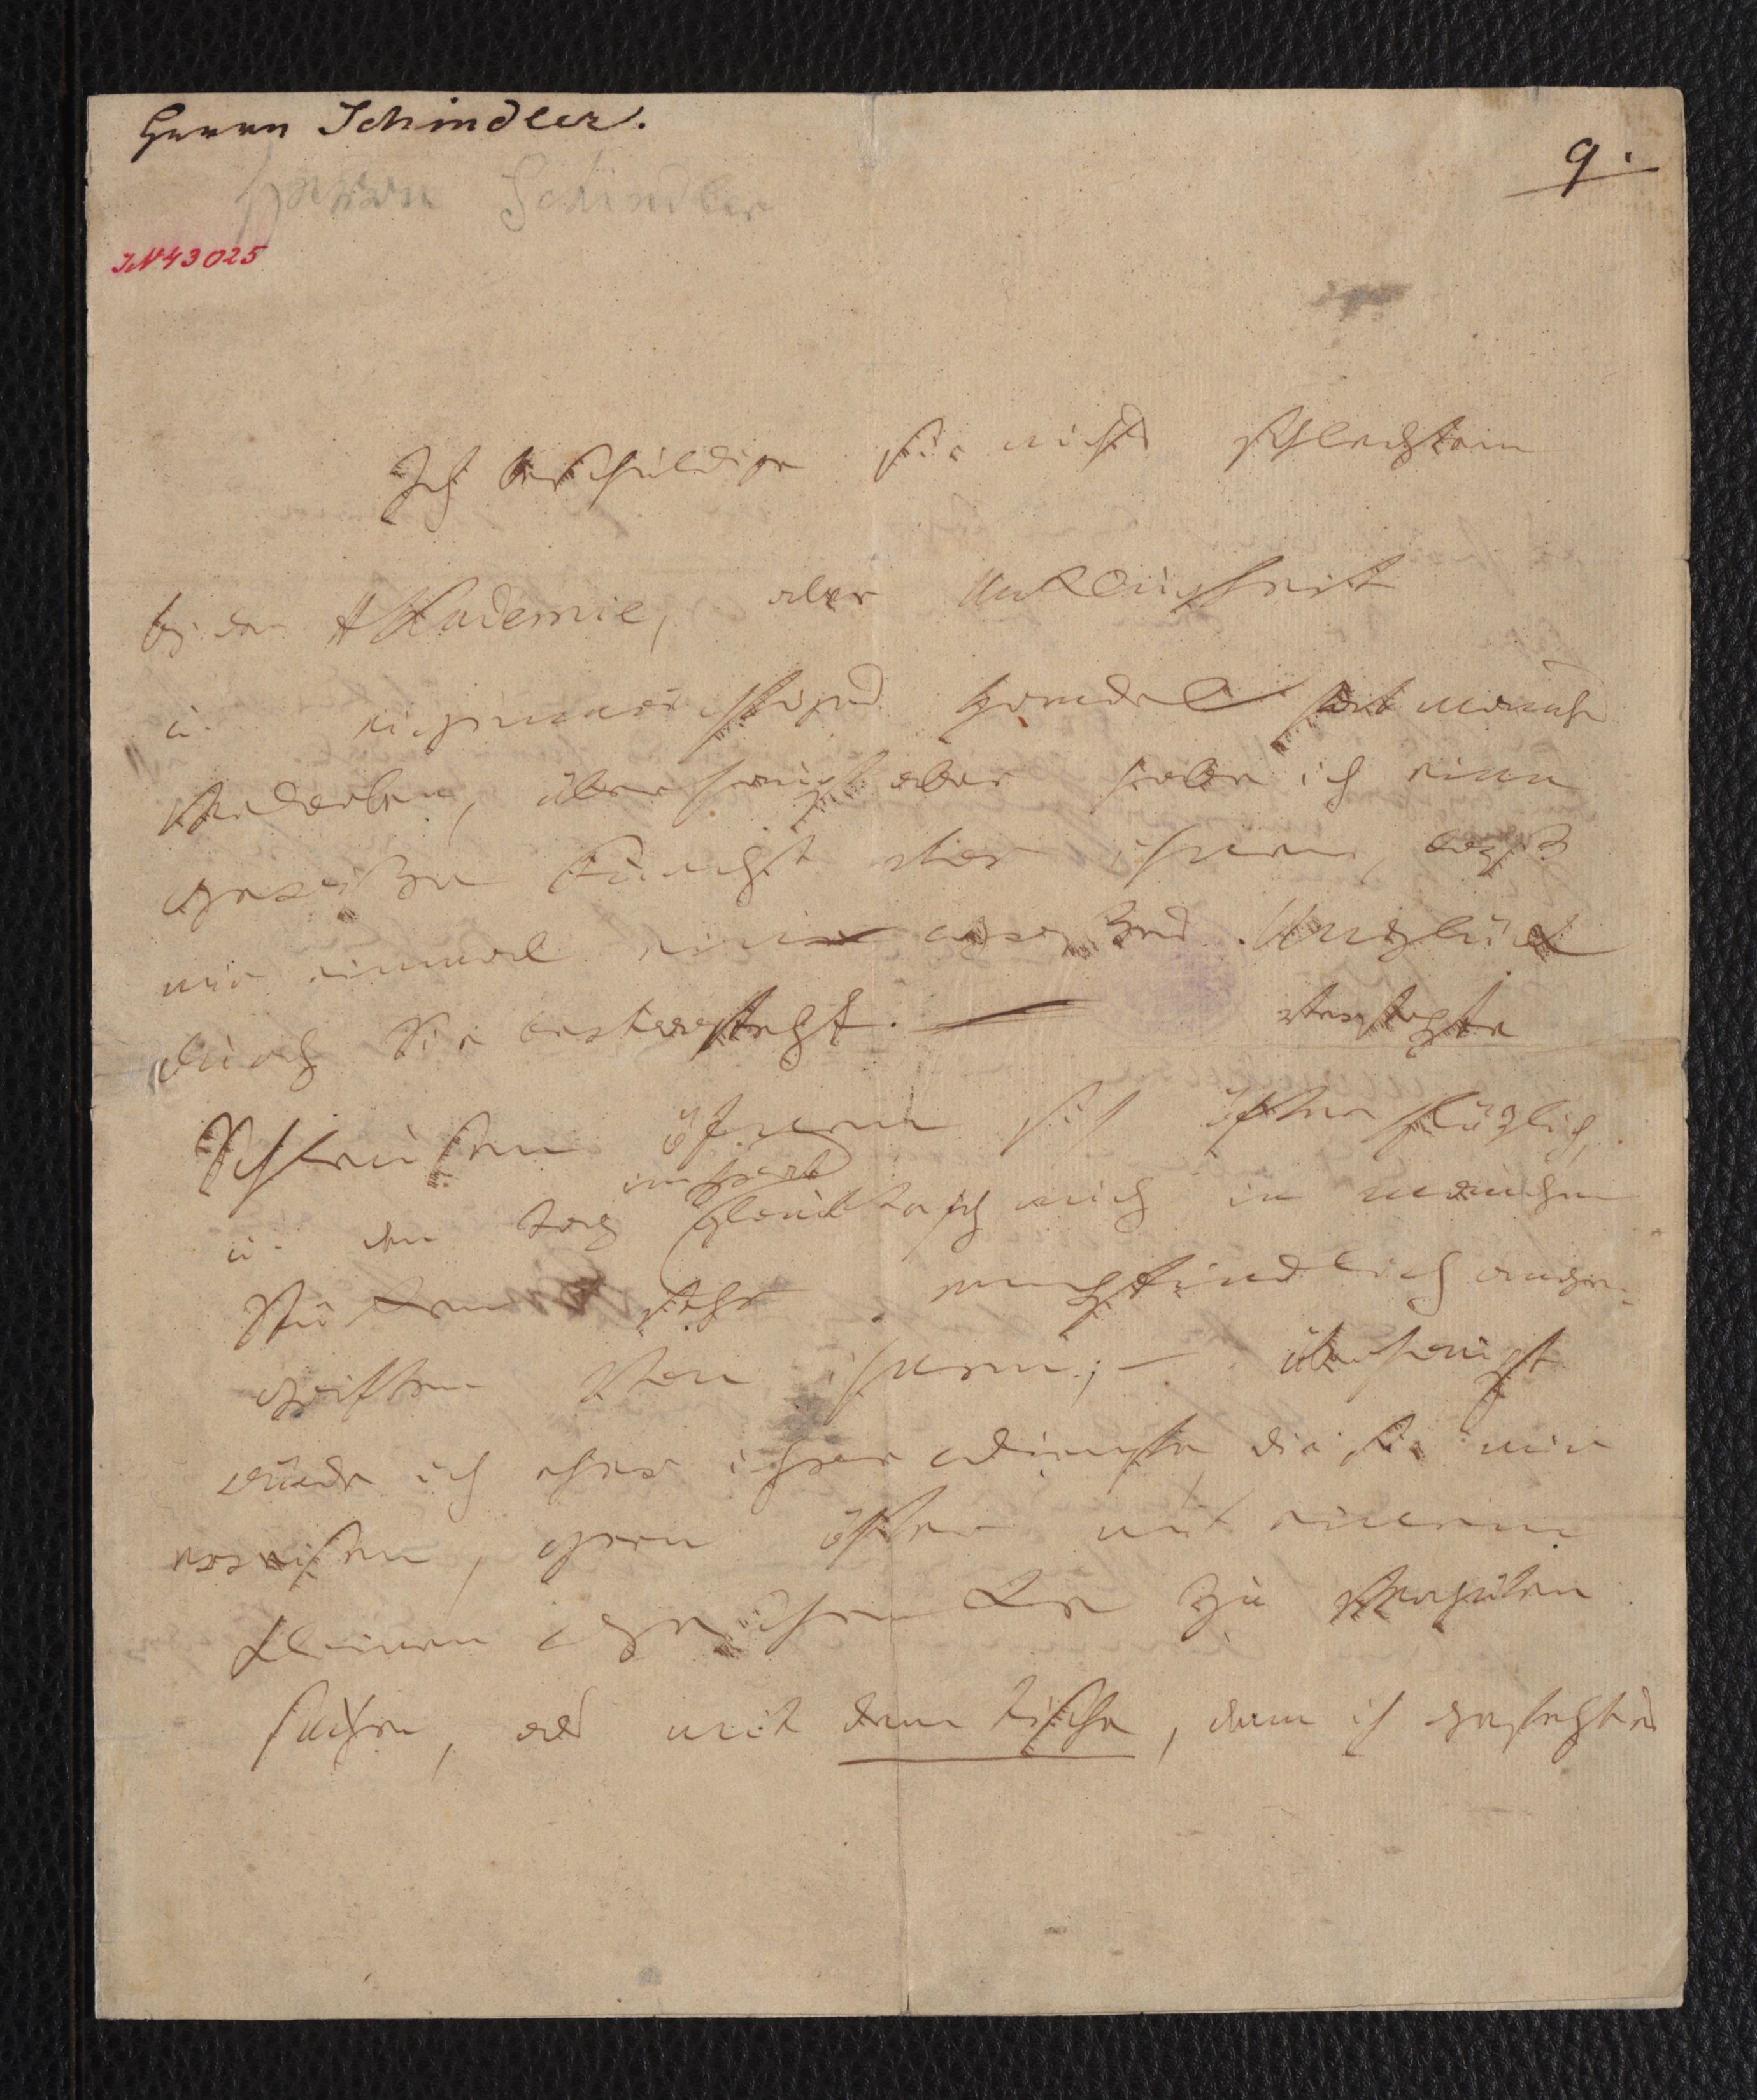 Herrn Schindler.
9.
Herrn Schindler
IN 43025
Ich beschuldige sie nichts schlechten
bej der Akademie, aber Unklugheit
u. eigenmächtiges Handeln hat manches
verdorben, überhaupt aber habe ich eine
gewiße Furcht vor ihnen, daß
mir einmal ein großes Unglück
durch Sie bevorsteht. — verstopfte
Schleußen öfnen sich öfter plözlich,
im prater
u. den Tag glaubte ich mich in manchen
Stücken sehr empfindlich ange-
griffen von ihnen; — überhaupt
würde ich eher ihre Dienste, die sie mir
erweisen, gern öfter mit einem
kleinen Geschenke zu vergüten
suchen, als mit dem tische, denn ich gestehe es